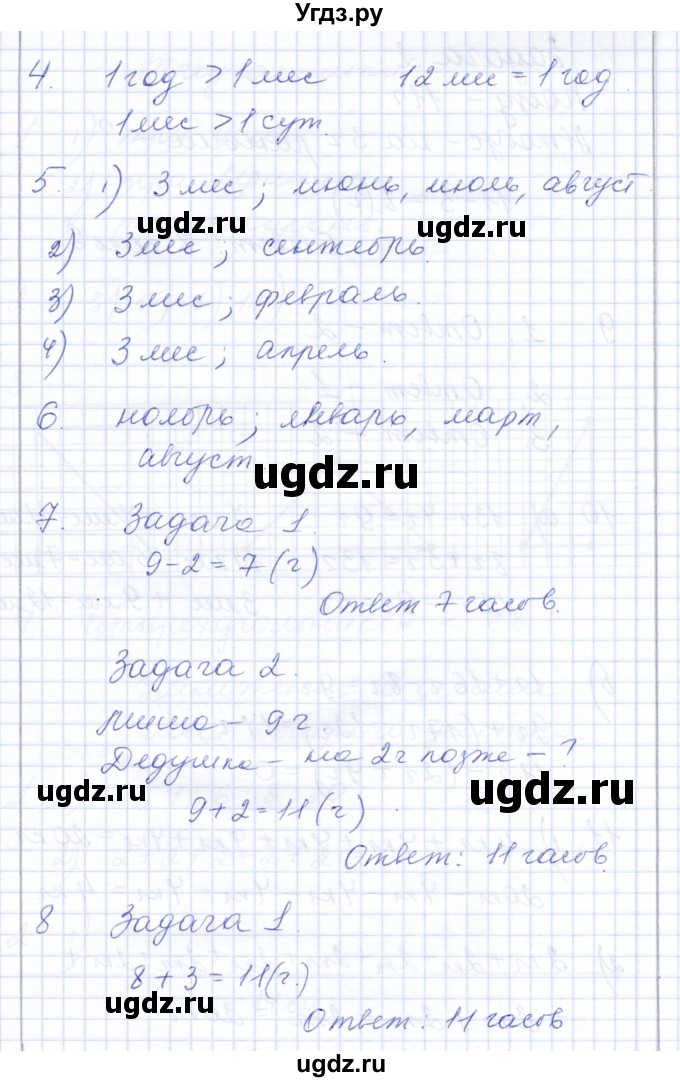 Угдз.ру
4. 1 год > 1 мес 12 мес = 1 год.
1 мес > 1 сут.
5. 1) 3 мес; июнь, июль, август.
ugdz.ru ugdz.ru
2) 3 мес; сентябрь.
3) 3 мес; февраль.
4) 3 мес; апрель.
6. ноябрь; январь, март,
август
ugdz.ru
7. Задача 1.
9-2=7(ч)
Ответ 7 часов.
Задача 2.
Миша - 9 ч.
Дедушка - на 2ч позже - ?
ugdz.ru ugdz.ru
9+2=11(ч)
Ответ: 11 часов.
8 Задача 1.
8+3=11(ч.)
Ответ: 11 часов
ugdz.ru
ugdz.ru